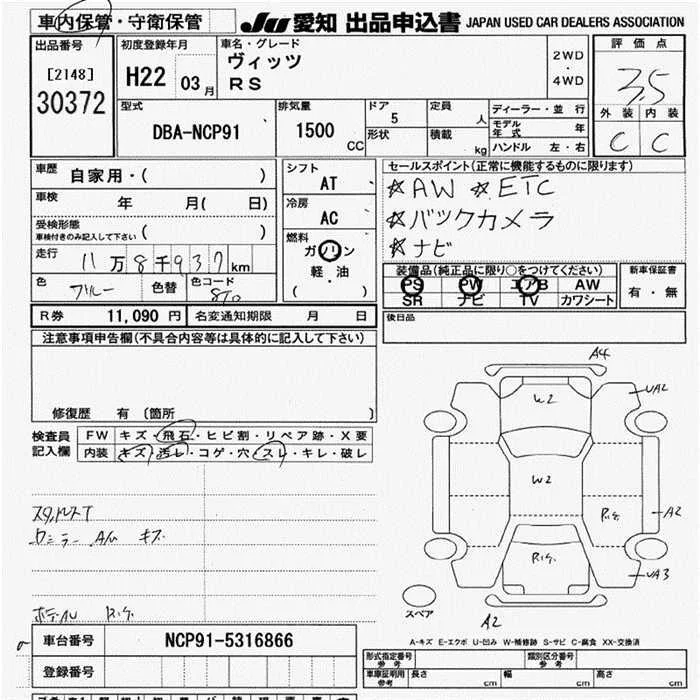 車内保管・守衛保管 JU 愛知 出品申込書 JAPAN USED CAR DEALERS ASSOCIATION
出品番号
[2148]
30372
初度登録年月
H22 03月
車名・グレード
ヴィッツ
RS
2WD
・
4WD
評価点
3.5
外装 内装
C C
型式
DBA-NCP91
排気量
1500 CC
ドア
5
形状
定員
人
積載
kg
ディーラー・並行
モデル年式 年
ハンドル 左・右
車歴 自家用・( )
車検 年 月( 日)
受検形態
車検付きのみ記入して下さい ( )
走行 11万8千937km
色 ブルー 色替 色コード 8T0
シフト
AT
冷房
AC
燃料
ガソリン
軽・油
( )
セールスポイント(正常に機能するものに限ります)
☆AW ☆ETC
☆バックカメラ
☆ナビ
装備品(純正品に限り○をつけてください)
PS PW エアB AW
SR ナビ TV カワシート
新車保証書
有・無
R券 11,090円 名変通知期限 月 日
後日品
注意事項申告欄(不具合内容等は具体的に記入して下さい)
修復歴 有 〔箇所 〕
検査員
記入欄
FW キズ・飛石・ヒビ割・リペア跡・X要
内装 キズ・汚レ・コゲ・穴・スレ・キレ・破レ
A4
W2
UA2
W2
A2
UA3
A2
スペア
A-キズ E-エクボ U-凹み W-補修跡 S-サビ C-腐食 XX-交換済
車台番号 NCP91-5316866
登録番号
形式指定番号
参考
類別区分番号
参考
車庫証明用
参考
長さ cm 幅 cm 高さ cm